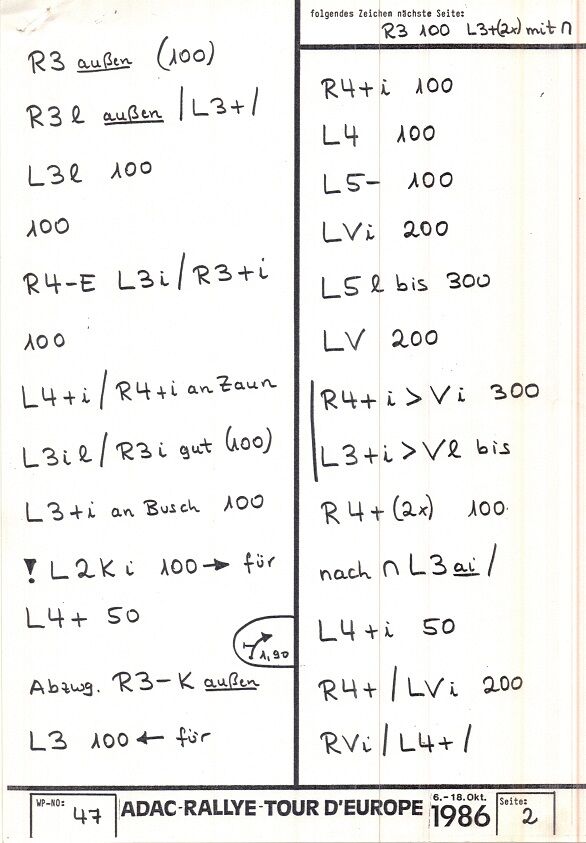 R3 außen (100)
R3 l außen / L3+ /
L3l 100
100
R4-E L3i / R3+i
100
L4+i / R4+i an Zaun
L3il / R3i gut (100)
L3+i an Busch 100
! L2Ki 100 → für
L4+ 50
1,90
Abzwg. R3-K außen
L3 100 ← für
folgendes Zeichen nächste Seite:
R3 100 L3+(2x) mit ∩
R4+i 100
L4 100
L5- 100
LVi 200
L5 l bis 300
LV 200
R4+i > Vi 300
L3+i > Vl bis
R4+(2x) 100
nach ∩ L3 ai /
L4+i 50
R4+ / LVi 200
RVi / L4+ /
WP-NO: 47
ADAC-RALLYE-TOUR D'EUROPE
6.-18.Okt. 1986
Seite: 2